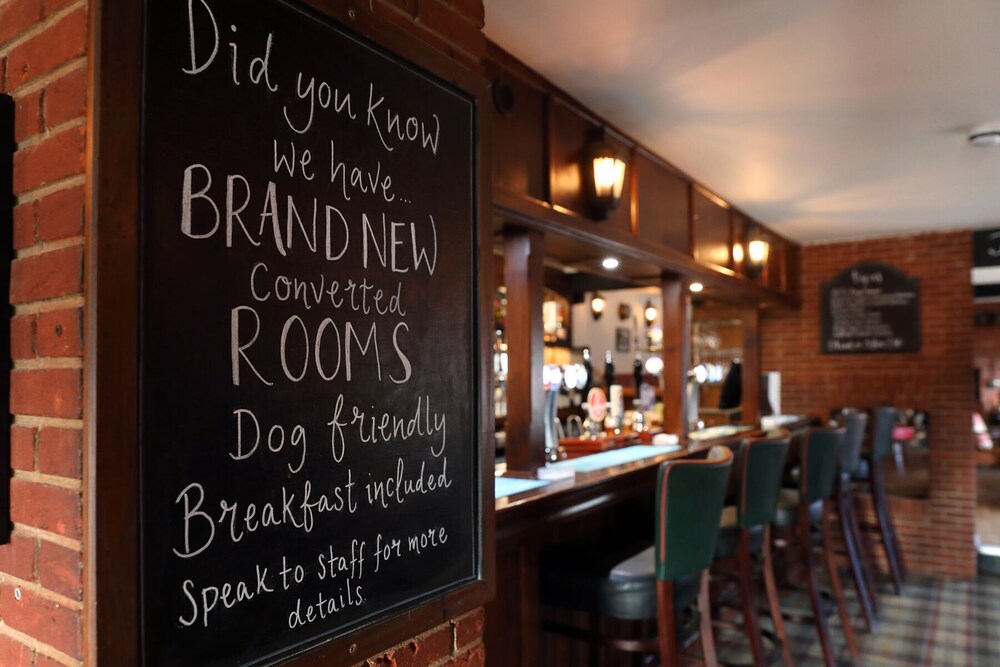 Did you know
we have...
BRAND NEW
Converted
ROOMS
Dog friendly
Breakfast included
Speak to staff for more
details